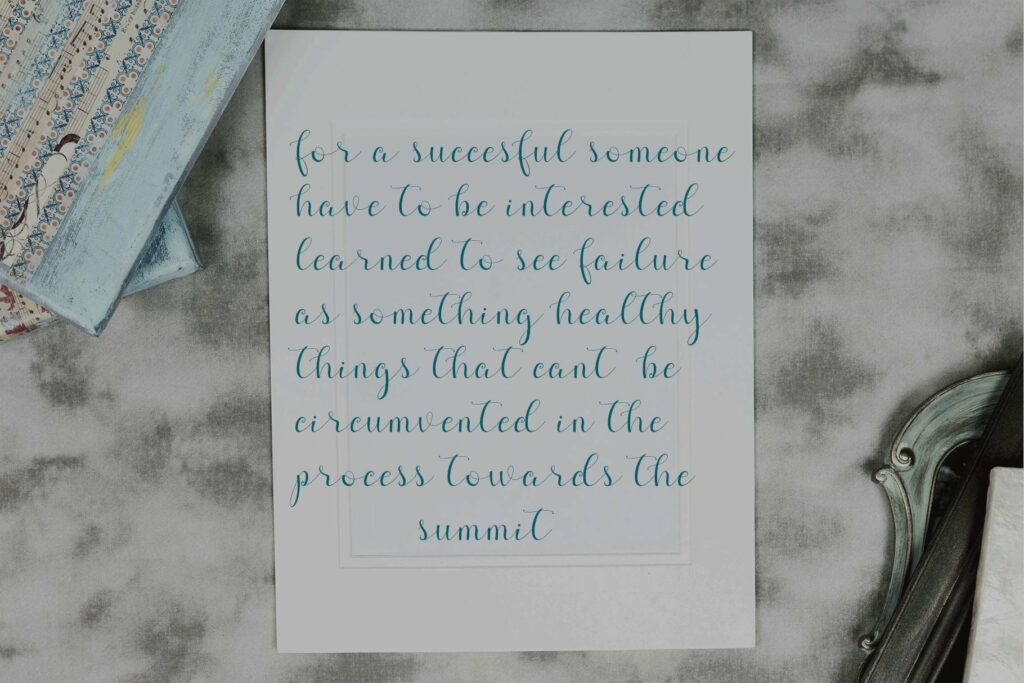 for a succesful someone
have to be interested
learned to see failure
as something healthy
things that cant be
circumvented in the
process towards the
summit